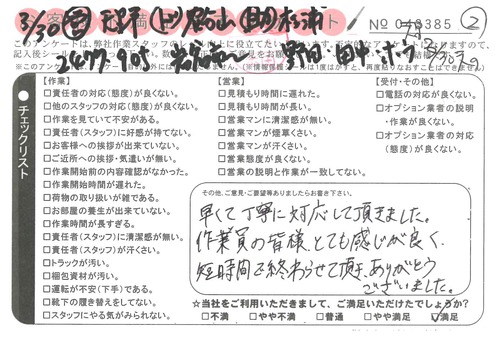 No 079385 ②
このアンケートは、弊社作業スタッフの
チェックリスト
【作業】
□責任者の対応(態度)が良くない。
□他のスタッフの対応(態度)が良くない。
□作業を見ていて不安がある。
□責任者(スタッフ)に好感が持てない。
□お客様への挨拶が出来ていない。
□ご近所への挨拶・気遣いが無い。
□作業開始前の内容確認がなかった。
□作業開始時間が遅れた。
□荷物の取り扱いが雑である。
□お部屋の養生が出来ていない。
□作業時間が長すぎる。
□責任者(スタッフ)に清潔感が無い。
□責任者(スタッフ)が汗くさい。
□トラックが汚い。
□梱包資材が汚い。
□運転が不安(下手)である。
□靴下の履き替えをしてない。
□スタッフにやる気がみられない。
【営業】
□見積もり時間に遅れた。
□見積もり時間が長い。
□営業マンに清潔感が無い。
□営業マンが煙草くさい。
□営業マンが汗くさい。
□営業態度が良くない。
□営業の説明と作業が一致してない。
【受付・その他】
□電話の対応が良くない。
□オプション業者の説明・作業が良くない。
□オプション業者の対応(態度)が良くない。
その他、ご意見・ご要望等ありましたらお書き下さい。
早くて丁寧に対応して頂きました。
作業員の皆様とても感じが良く、
短時間で終わらせて頂き、ありがとう
ございました。
☆当社をご利用いただきまして、ご満足いただけたでしょうか?
□不満 □やや不満 □普通 □やや満足 ☑満足